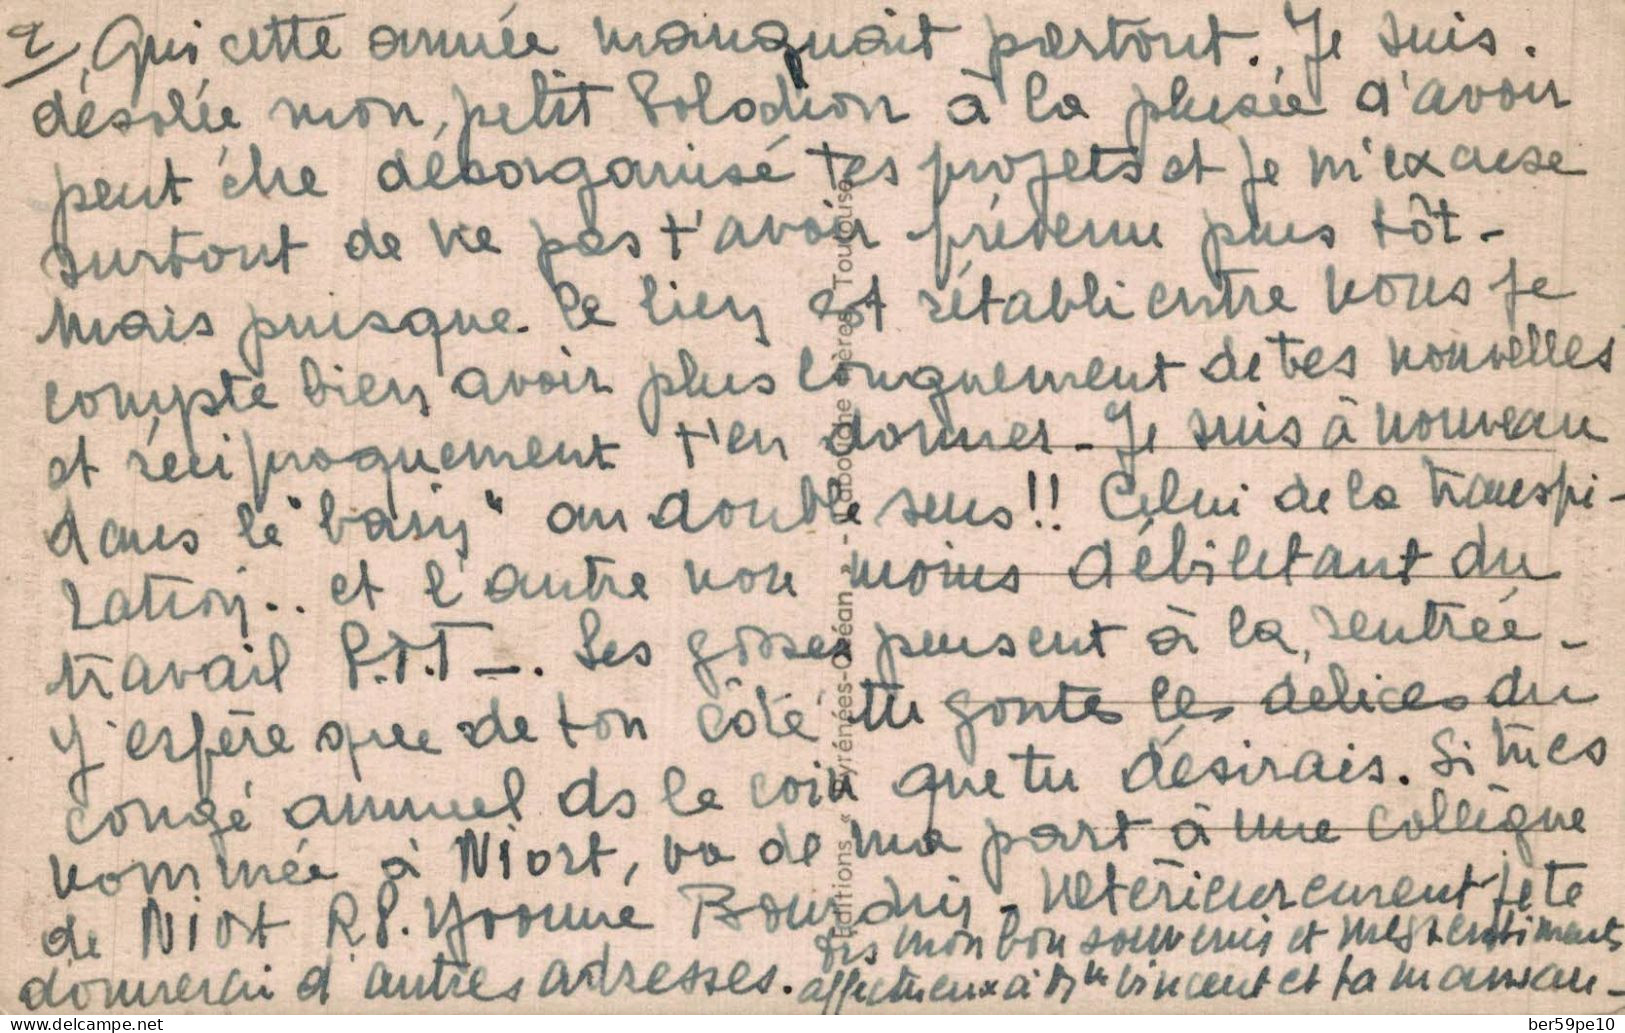 2/ Qui cette année manquait partout. Je suis
désolée mon petit à la pensée d'avoir
peut être désorganisé tes projets et je m'excuse
surtout de ne pas t'avoir prévenu plus tôt -
Mais puisque le lien est rétabli entre nous je
compte bien avoir plus longuement de tes nouvelles
et réciproquement t'en donner - Je suis à nouveau
dans le "bain" au double sens!! Celui de la transpi-
ration.. et l'autre non moins débilitant du
travail P.T.T -. Les gosses pensent à la rentrée -
J'espère que de ton côté tu goûtes les délices du
congé annuel ds le coin que tu désirais. Si tu es
nommée à Niort, va de ma part à une collègue
de Niort R.P. Yvonne - Ultérieurement je te
donnerai d'autres adresses. Dis mon bon souvenir et mes sentiments
affectueux à Vincent et ta maman -
Editions « Pyrénées-Océan » - Labouche Frères Toulouse
delcampe.net
ber59pe10